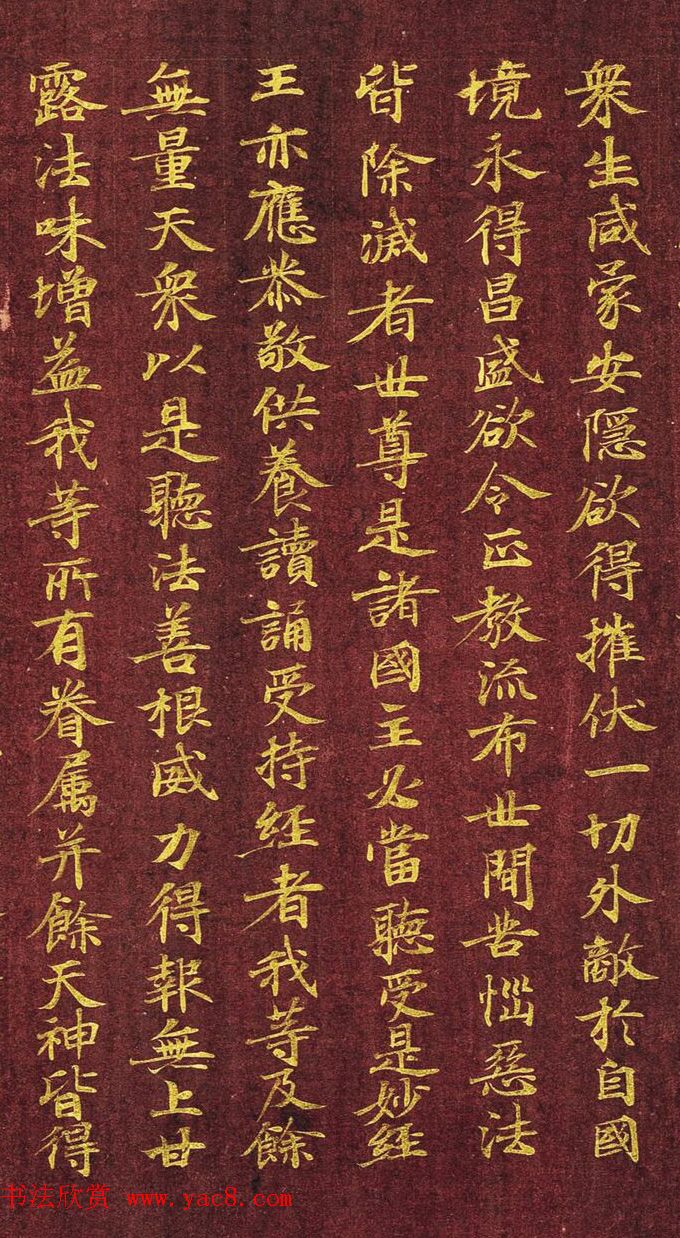 衆生咸蒙安隱欲得摧伏一切外敵於自國
境永得昌盛欲令正教流布世間苦惱惡法
皆除滅者世尊是諸國主必當聽受是妙經
王亦應恭敬供養讀誦受持經者我等及餘
無量天衆以是聽法善根威力得報無上甘
露法味增益我等所有眷属并餘天神皆得
书法欣赏 www.yac8.com